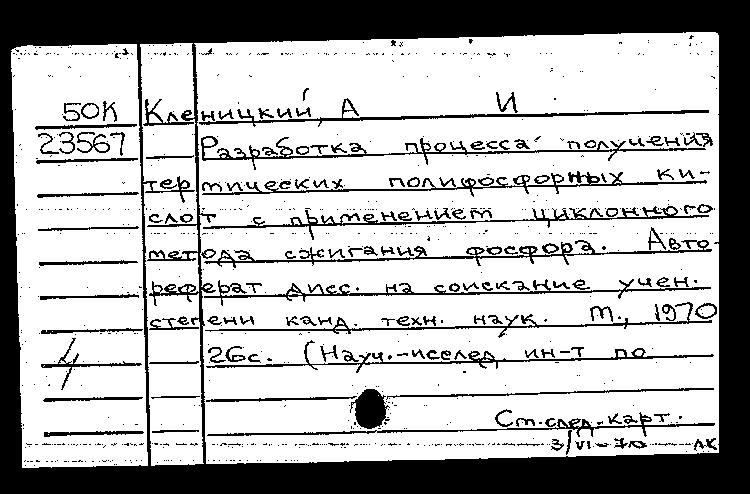 50К Кленицкий, А И
23567 Разработка процесса получения
термических полифосфорных ки-
слот с применением циклонного
метода сжигания фосфора. Авто-
реферат дисс. на соискание учен.
степени канд. техн. наук. М., 1970
26с. (Науч.-исслед. ин-т по
4
См.след.карт.
3/VI-70 ЛК